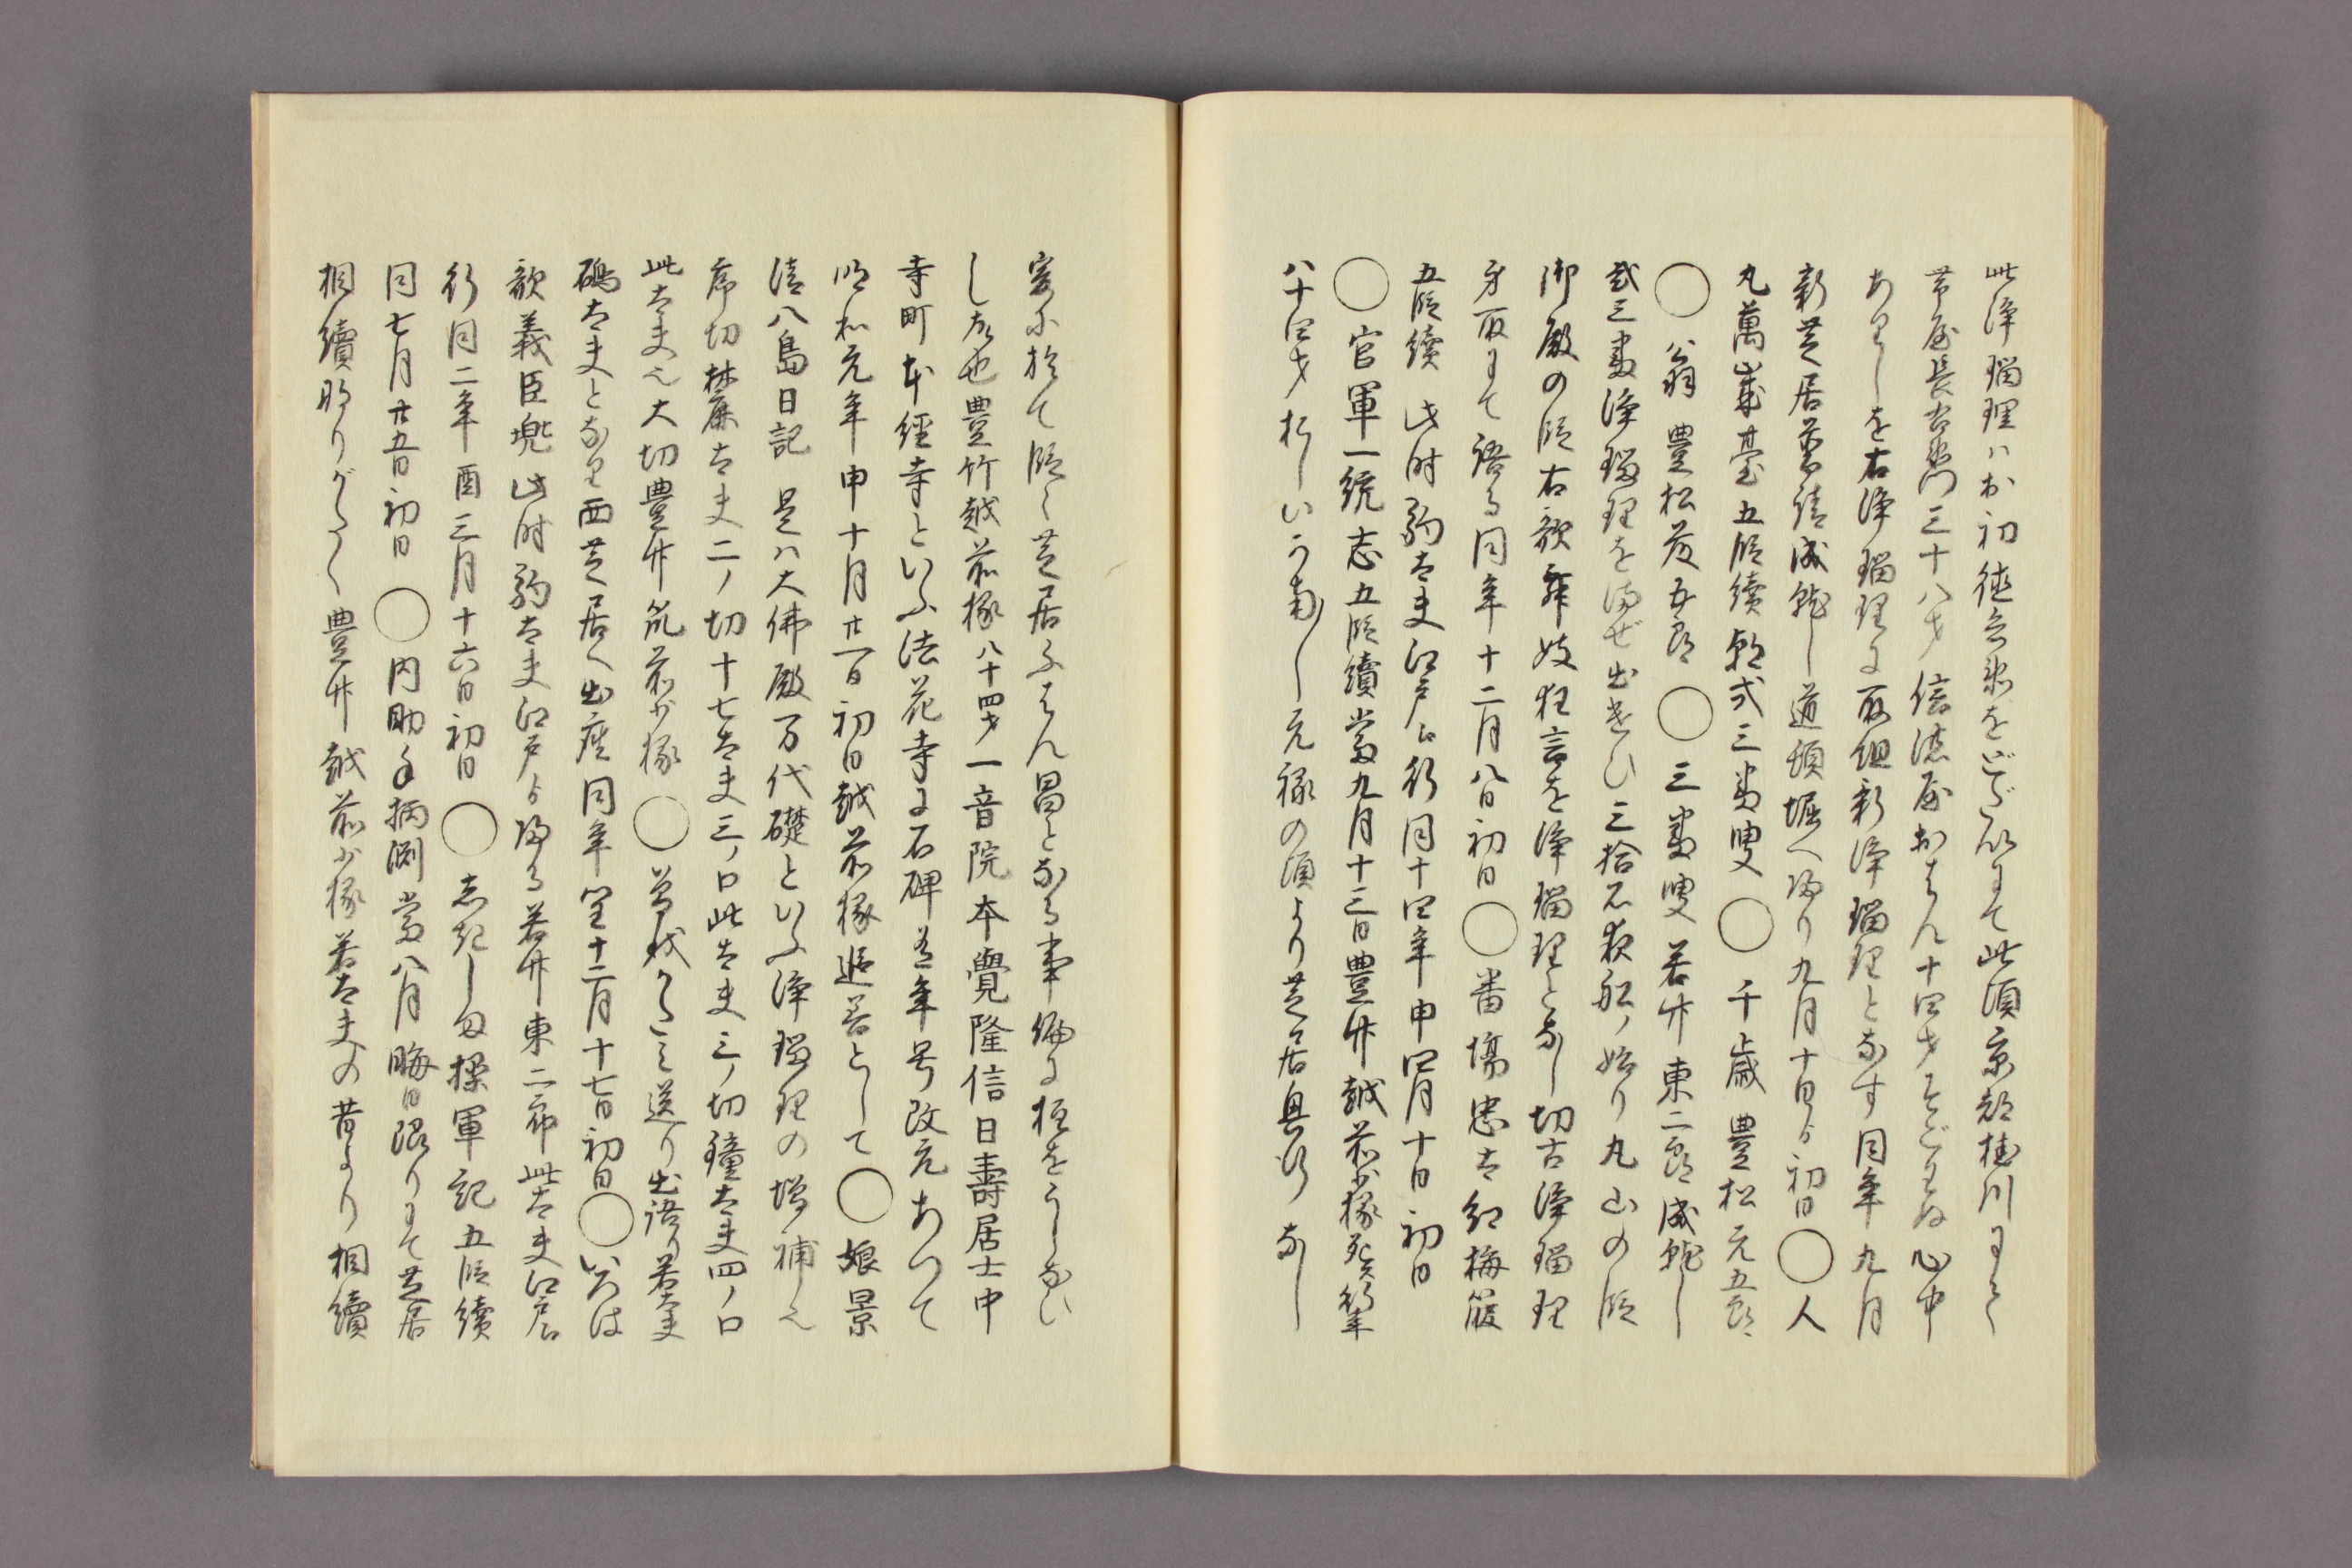 此浄瑠理ハお初徳兵衛をどだいにて此頃京都桂川にて
帯屋長右衛門三十八才信濃屋おはん十四才そぐわぬ心中
ありしを右浄瑠理に取組新浄瑠理となす同年九月
新芝居普請成就し道頓堀へ帰り九月十日ゟ初日◯人
丸萬歳臺五段續朝式三番叟◯千歳豊松元五郎
◯翁豊松藤五郎◯三番叟若竹東二郎成就し
式三番浄瑠理をまぜ出遣ひ三拾石夜船ノ始り丸山の段
御殿の段右歌舞妓狂言を浄瑠理となし切古浄瑠理
身取にて語る同年十二月八日初日◯番場忠太紅梅箙
五段續此时駒太夫江戸へ行同十四年申四月十日初日
◯官軍一統志五段續當九月十三日豊竹越前少掾死行年
八十四才おしいかなし元禄の頃より芝居興行なし
爰に於て段々芝居はん昌となる事偏に柱をうしない
し故也豊竹越前掾八十四才一音院本覺隆信日壽居士中
寺町本經寺といふ法花寺に石碑有年号改元あつて
明和元年申十月廿一日初日越前掾追善として◯娘景
清八島日記是ハ大佛殿万代礎といふ浄瑠理の増補也
序切麓太夫二ノ切十七太夫三ノ口此太夫三ノ切鐘太夫四ノ口
此太夫也大切豊竹筑前少掾◯曽我かたみ送り出語り若太夫
磯太夫となり西芝居へ出座同年閏十二月十七日初日◯いろは
歌義臣兜此时駒太夫江戸ゟ帰る若竹東二郎此太夫江戸へ
行同二年酉三月十六日初日◯志起しま操軍記五段續
同七月廿五日初日◯内助手柄渕當八月晦日限りにて芝居
相續成りがたく豊竹越前少掾若太夫の昔より相續